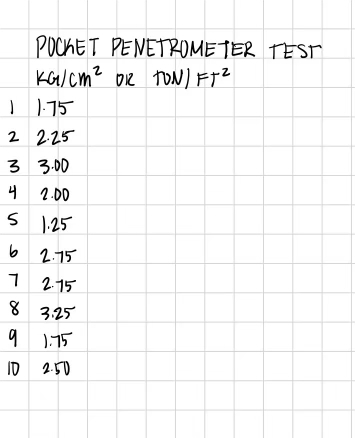 POCKET PENETROMETER TEST
KG/cm² OR TON/FT²
1 1.75
2 2.25
3 3.00
4 2.00
5 1.25
6 2.75
7 2.75
8 3.25
9 1.75
10 2.50